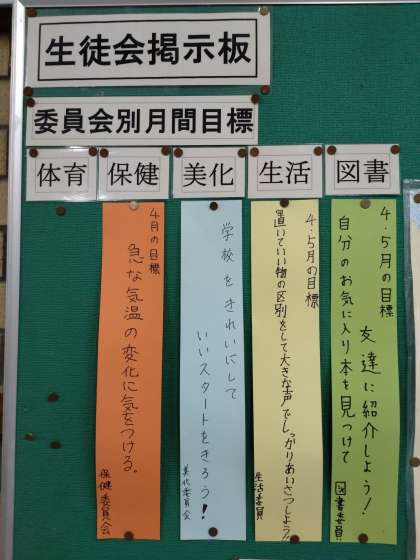 生徒会掲示板
委員会別月間目標
体育
保健
美化
生活
図書
4・5月の目標
自分のお気に入り本を見つけて
友達に紹介しよう!
図書委員
4・5月の目標
置いていい物の区別をして大きな声でしっかりあいさつしよう!!
生活委員
学校をきれいにして
いいスタートをきろう!
美化委員会
4月の目標
急な気温の変化に気をつける。
保健委員会